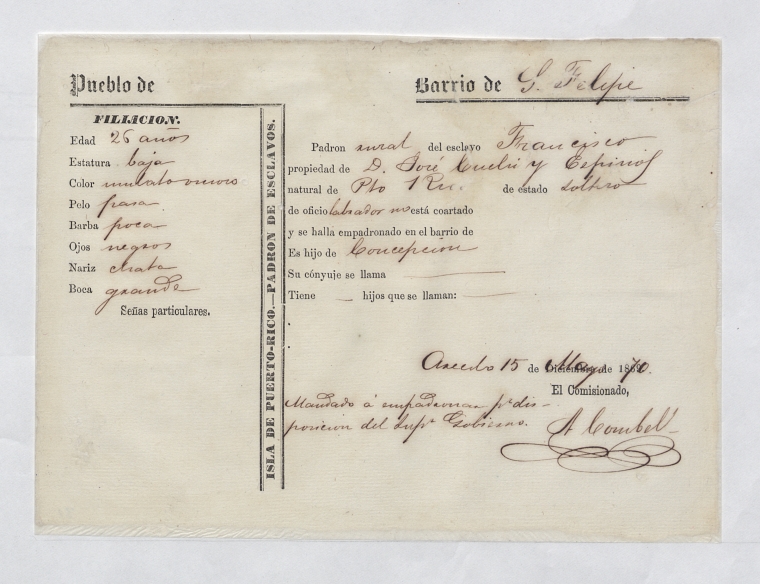 Pueblo de
Barrio de S. Felipe
FILIACION.
Edad 26 años
Estatura baja
Color mulato oscuro
Pelo pasa
Barba poca
Ojos negros
Nariz chata
Boca grande
Señas particulares.
ISLA DE PUERTO-RICO.—PADRON DE ESCLAVOS.
Padron rural del esclavo Francisco
propiedad de D. José y Espinol
natural de Pto Rico de estado soltero
de oficio labrador no está coartado
y se halla empadronado en el barrio de
Es hijo de Concepcion
Su cónyuje se llama —
Tiene — hijos que se llaman: —
Arecbo 15 de Mayo de 1870.
El Comisionado,
Mandado á empadronar pr dis-
posicion del Supr Gobierno.
A